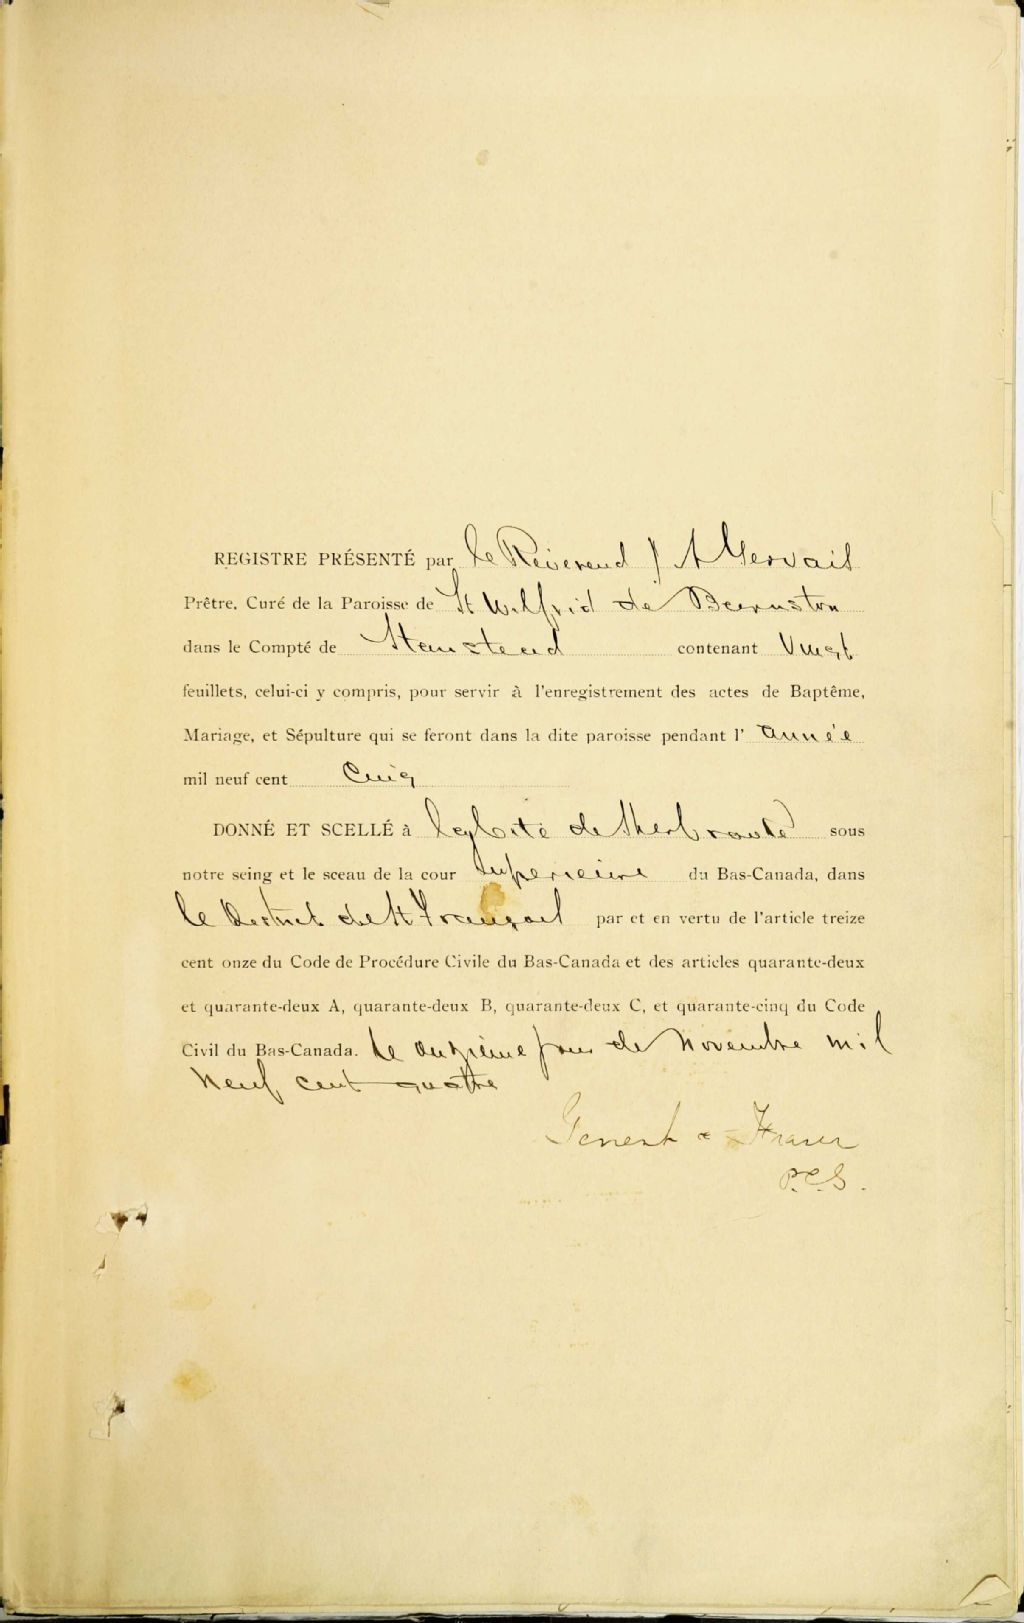 REGISTRE PRÉSENTÉ par le Révérend J A Gervais
Prêtre, Curé de la Paroisse de St Wilfrid de Beernston
dans le Compté de Stanstead contenant Vingt
feuillets, celui-ci y compris, pour servir à l'enregistrement des actes de Baptême,
Mariage, et Sépulture qui se feront dans la dite paroisse pendant l'année
mil neuf cent Cinq
DONNÉ ET SCELLÉ à de Sherbrooke sous
notre seing et le sceau de la cour Superieure du Bas-Canada, dans
le District de St François par et en vertu de l'article treize
cent onze du Code de Procédure Civile du Bas-Canada et des articles quarante-deux
et quarante-deux A, quarante-deux B, quarante-deux C, et quarante-cinq du Code
Civil du Bas-Canada. le onzième jour de Novembre mil
neuf cent quatre
Genest & Fraser
P.C.S.